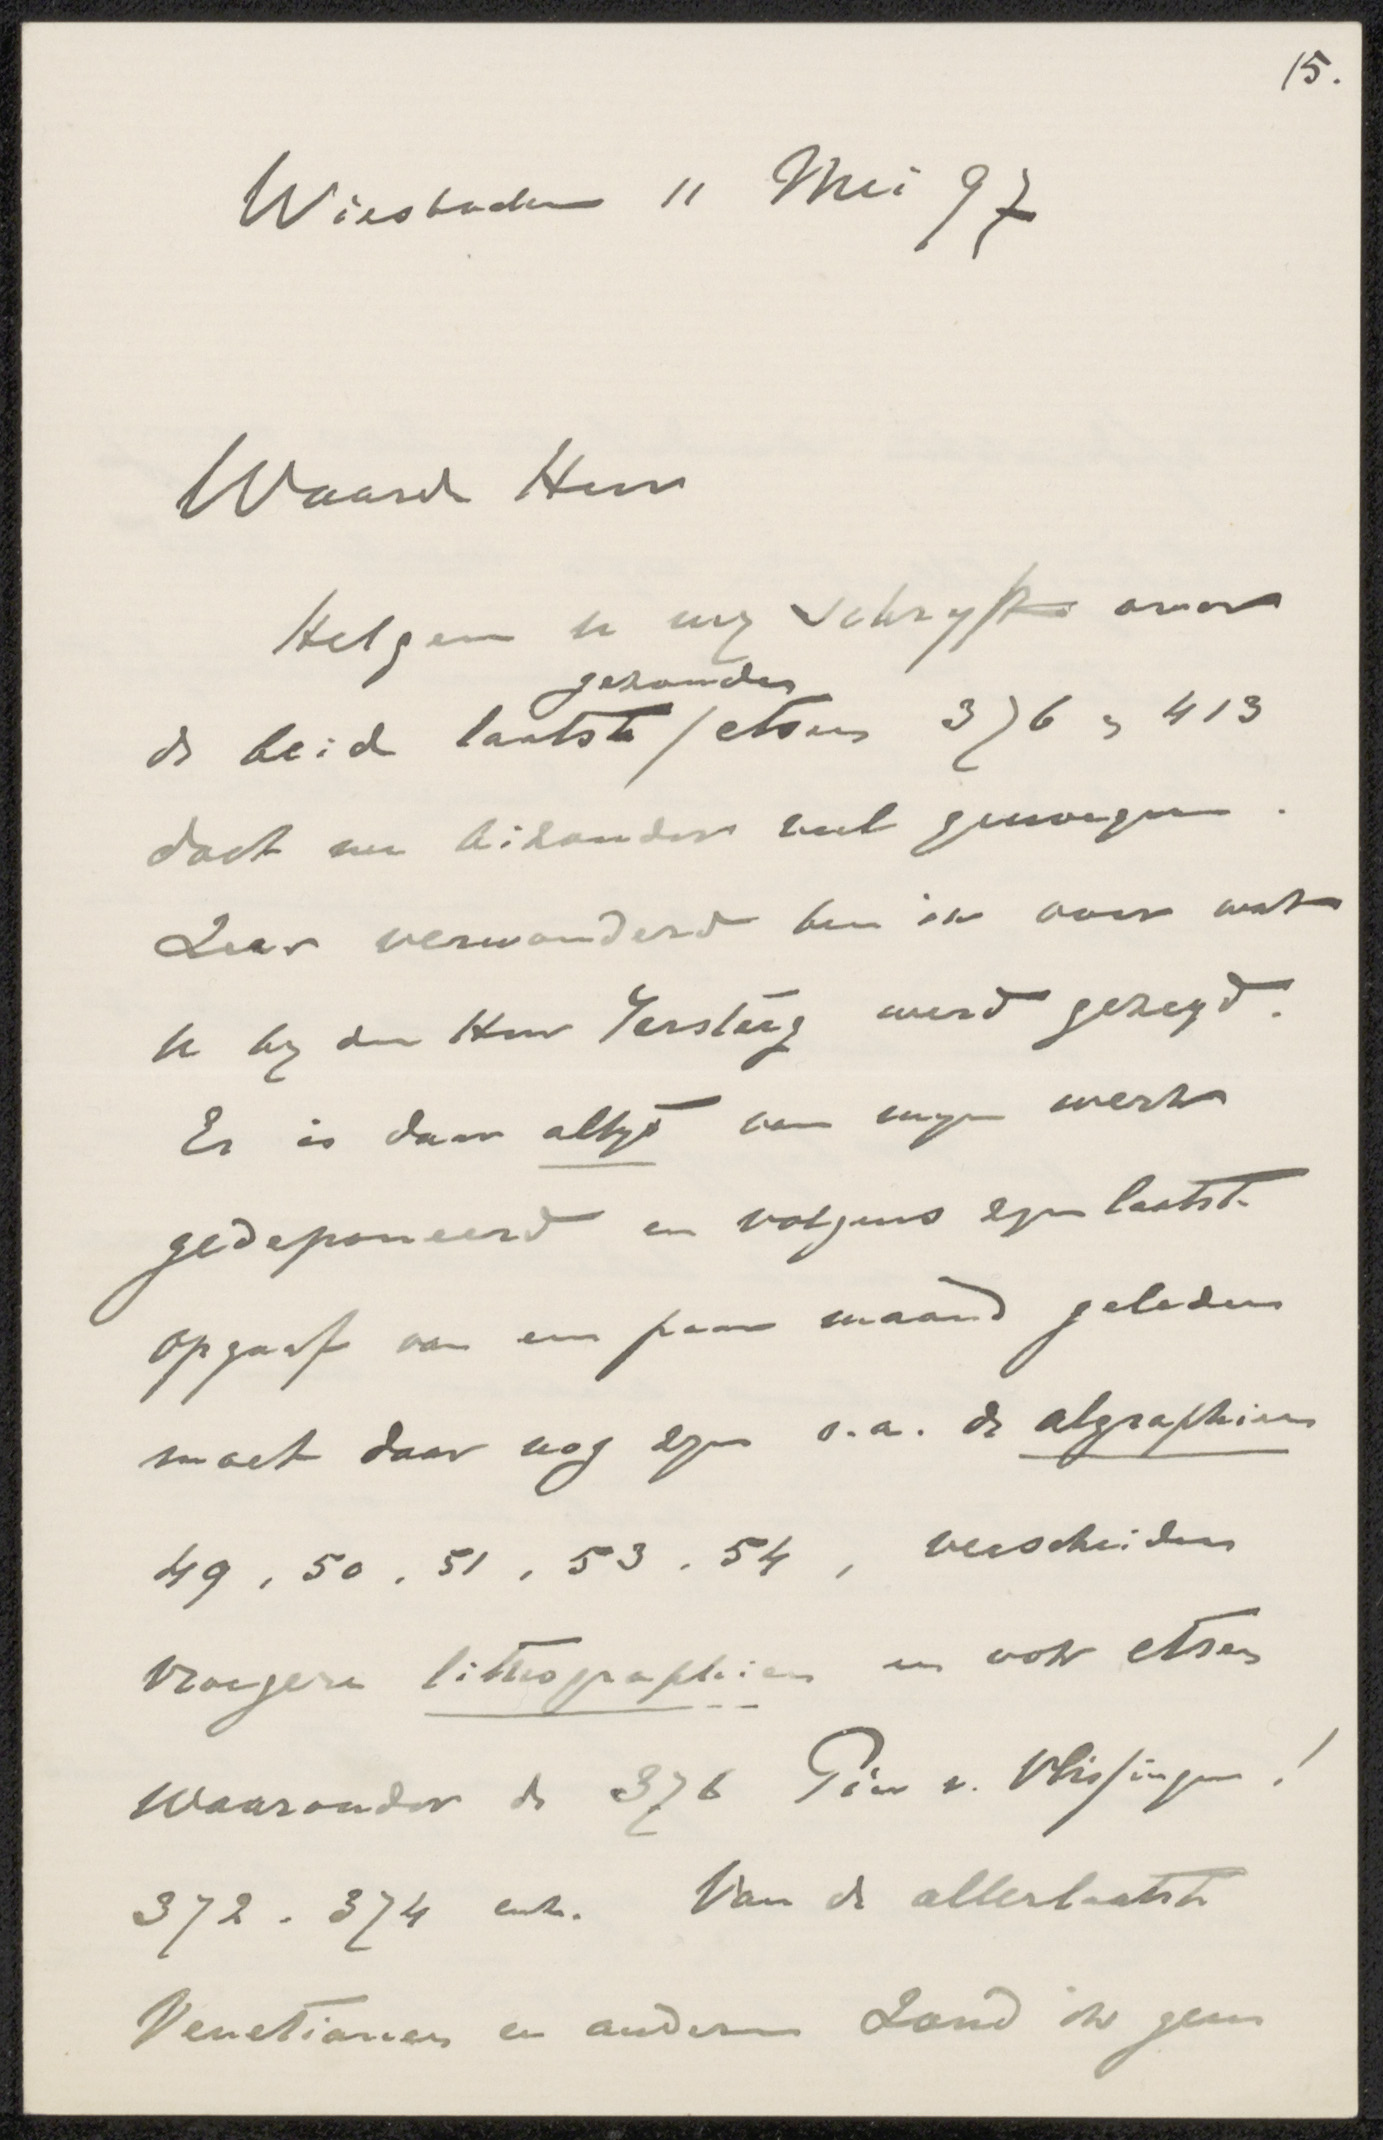 15.
Wiesbaden 11 Mei 97
Waarde Heer
Hetgeen u my schryft over
gezonden
de beide laatste / etsen 376 & 413
doet me bizonder veel genoegen.
Zeer verwonderd ben ik over wat
u by den Heer Tersteeg werd gezegd.
Er is daar altyd van myn werk
gedeponeerd en volgens zyn laatste
opgaaf van een paar maand geleden
moet daar nog zyn o.a. de algraphien
49, 50, 51, 53, 54, verscheiden
vroegere lithographien en ook etsen
waaronder de 376 Pier v. Vlissingen!
372. 374 enz. Van de allerlaatste
Venetianen en anderen zond ik geen